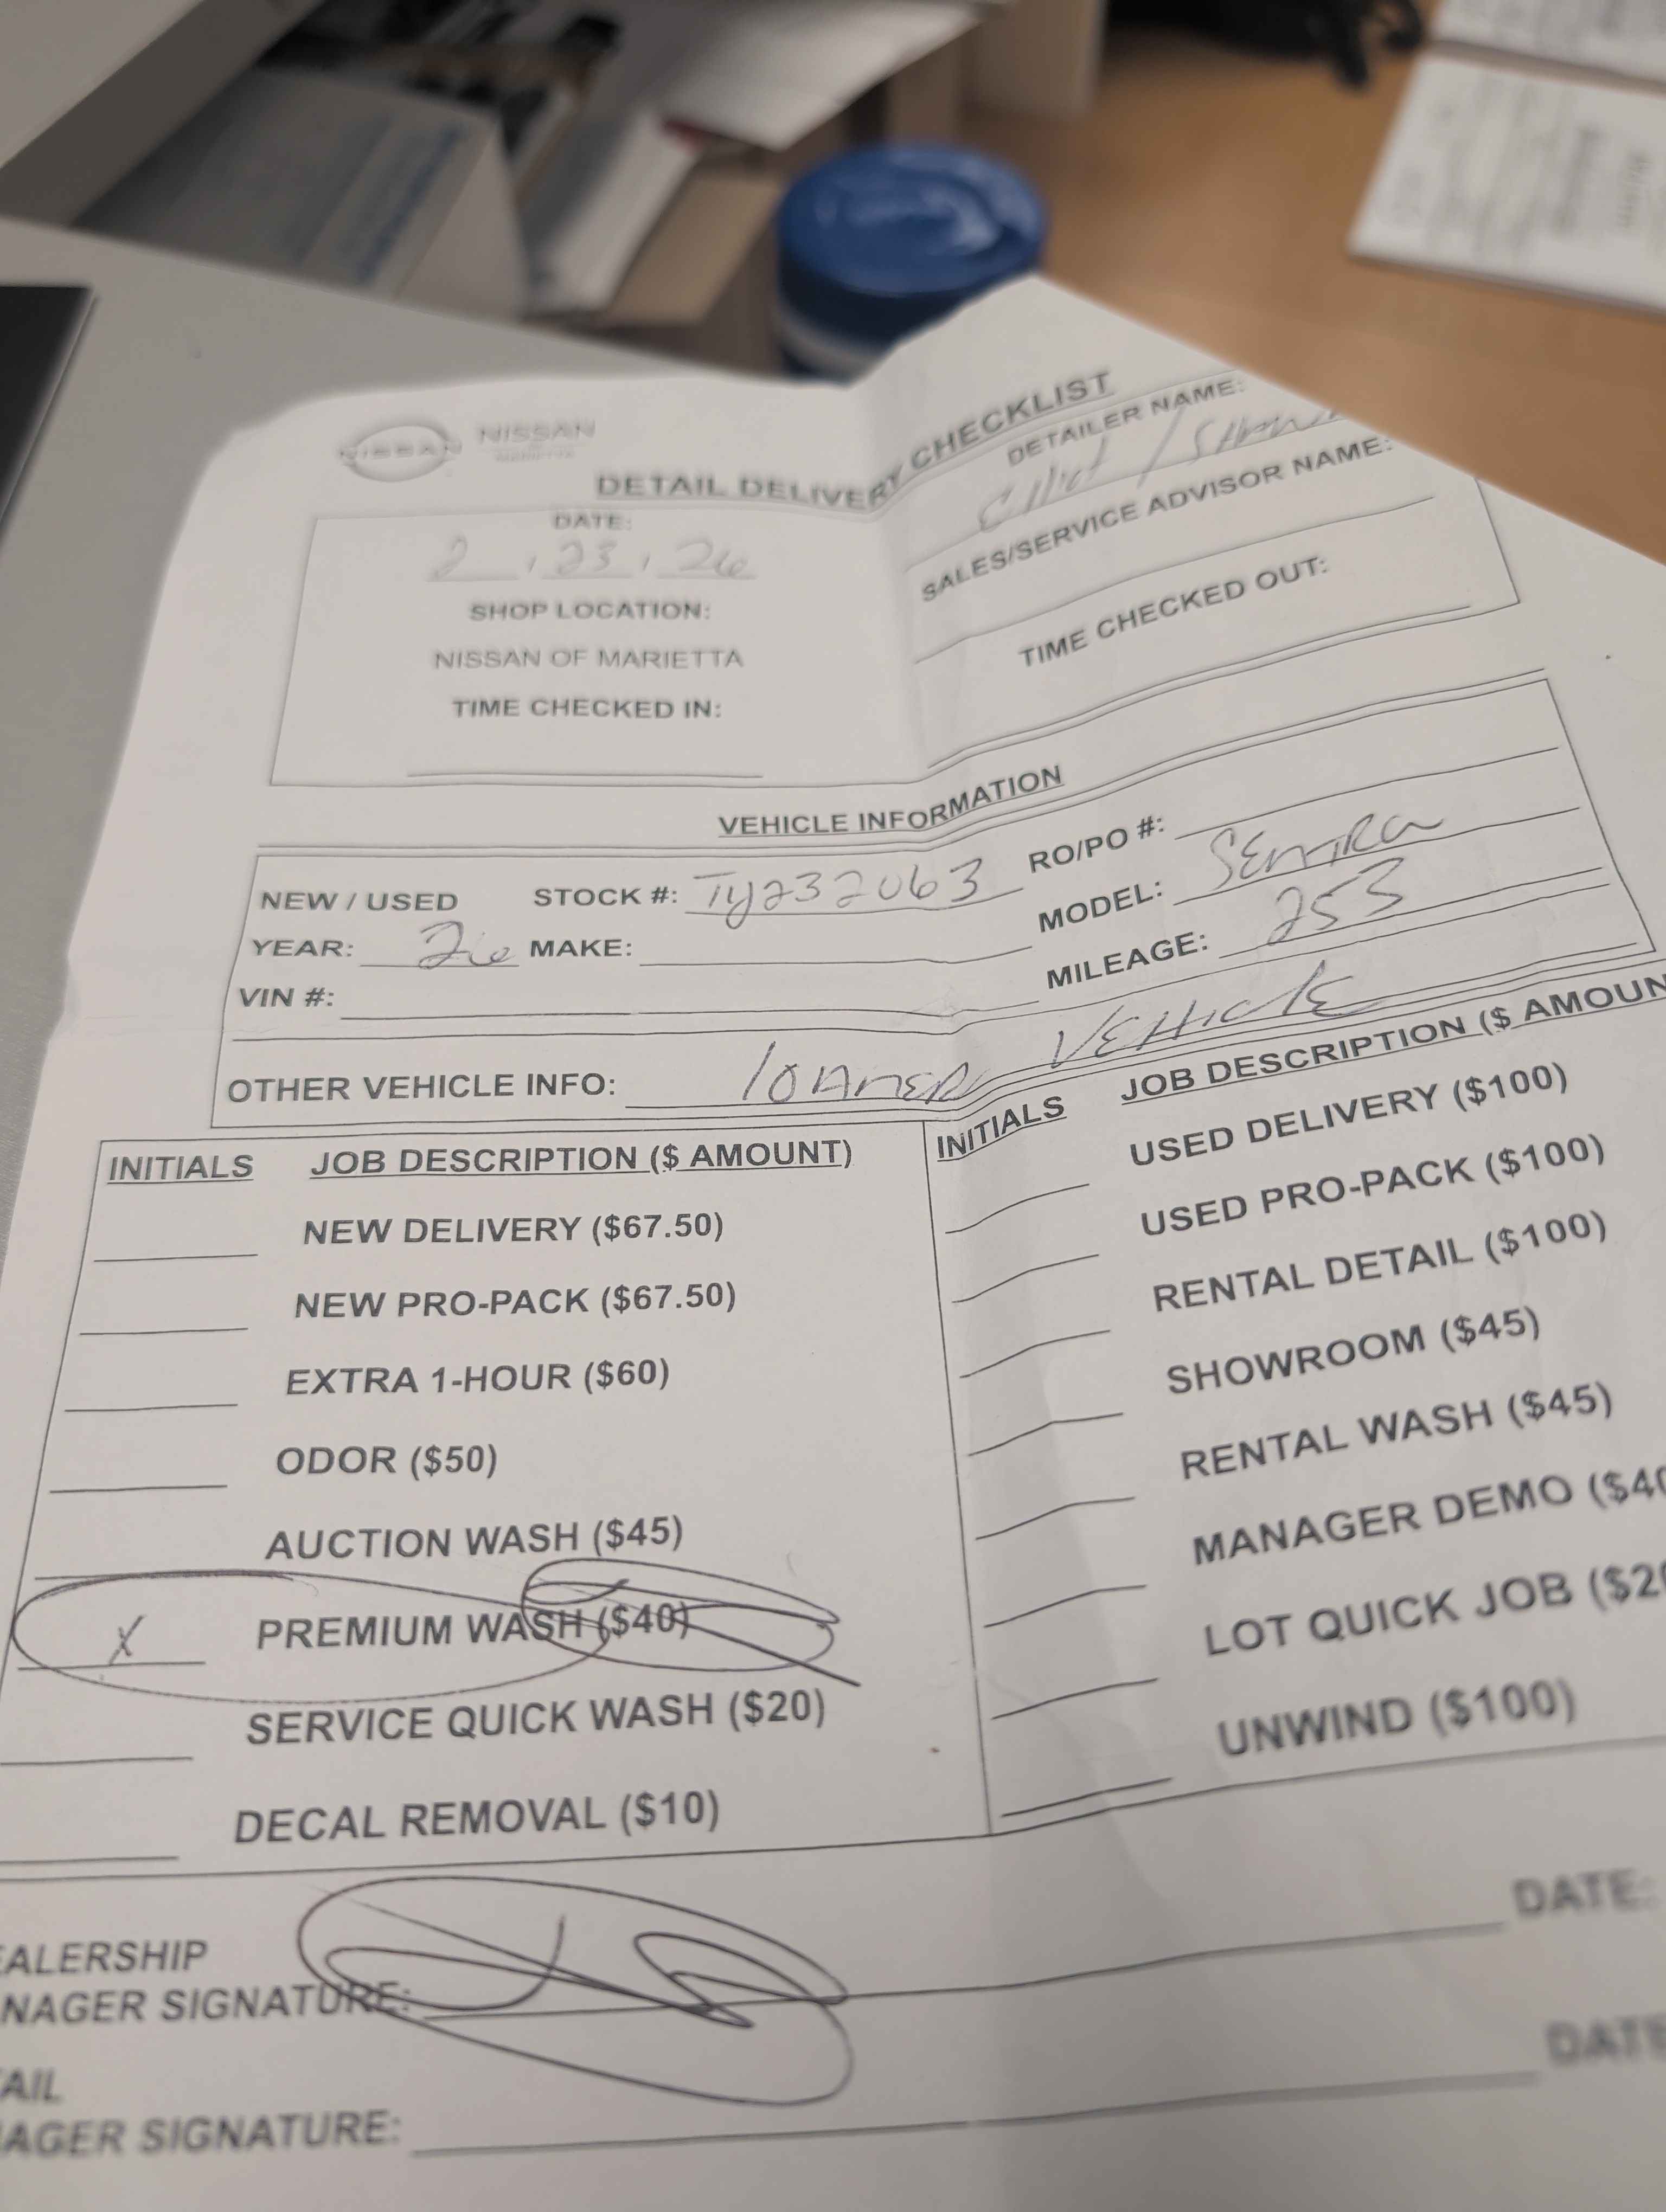 NISSAN NISSAN
DETAIL DELIVERY CHECKLIST
DATE:
2 , 23 , 26
SHOP LOCATION:
NISSAN OF MARIETTA
TIME CHECKED IN:
DETAILER NAME:
Elliot /
SALES/SERVICE ADVISOR NAME:
TIME CHECKED OUT:
VEHICLE INFORMATION
NEW / USED STOCK #: Ty232063 RO/PO #:
YEAR: 26 MAKE: MODEL: SENTRA
VIN #: MILEAGE: 253
OTHER VEHICLE INFO: lOANER VEHICLE
INITIALS JOB DESCRIPTION ($ AMOUNT)
NEW DELIVERY ($67.50)
NEW PRO-PACK ($67.50)
EXTRA 1-HOUR ($60)
ODOR ($50)
AUCTION WASH ($45)
X PREMIUM WASH ($40)
SERVICE QUICK WASH ($20)
DECAL REMOVAL ($10)
INITIALS JOB DESCRIPTION ($ AMOUN
USED DELIVERY ($100)
USED PRO-PACK ($100)
RENTAL DETAIL ($100)
SHOWROOM ($45)
RENTAL WASH ($45)
MANAGER DEMO ($40
LOT QUICK JOB ($20
UNWIND ($100)
EALERSHIP
NAGER SIGNATURE: DATE:
AIL
AGER SIGNATURE: DATE